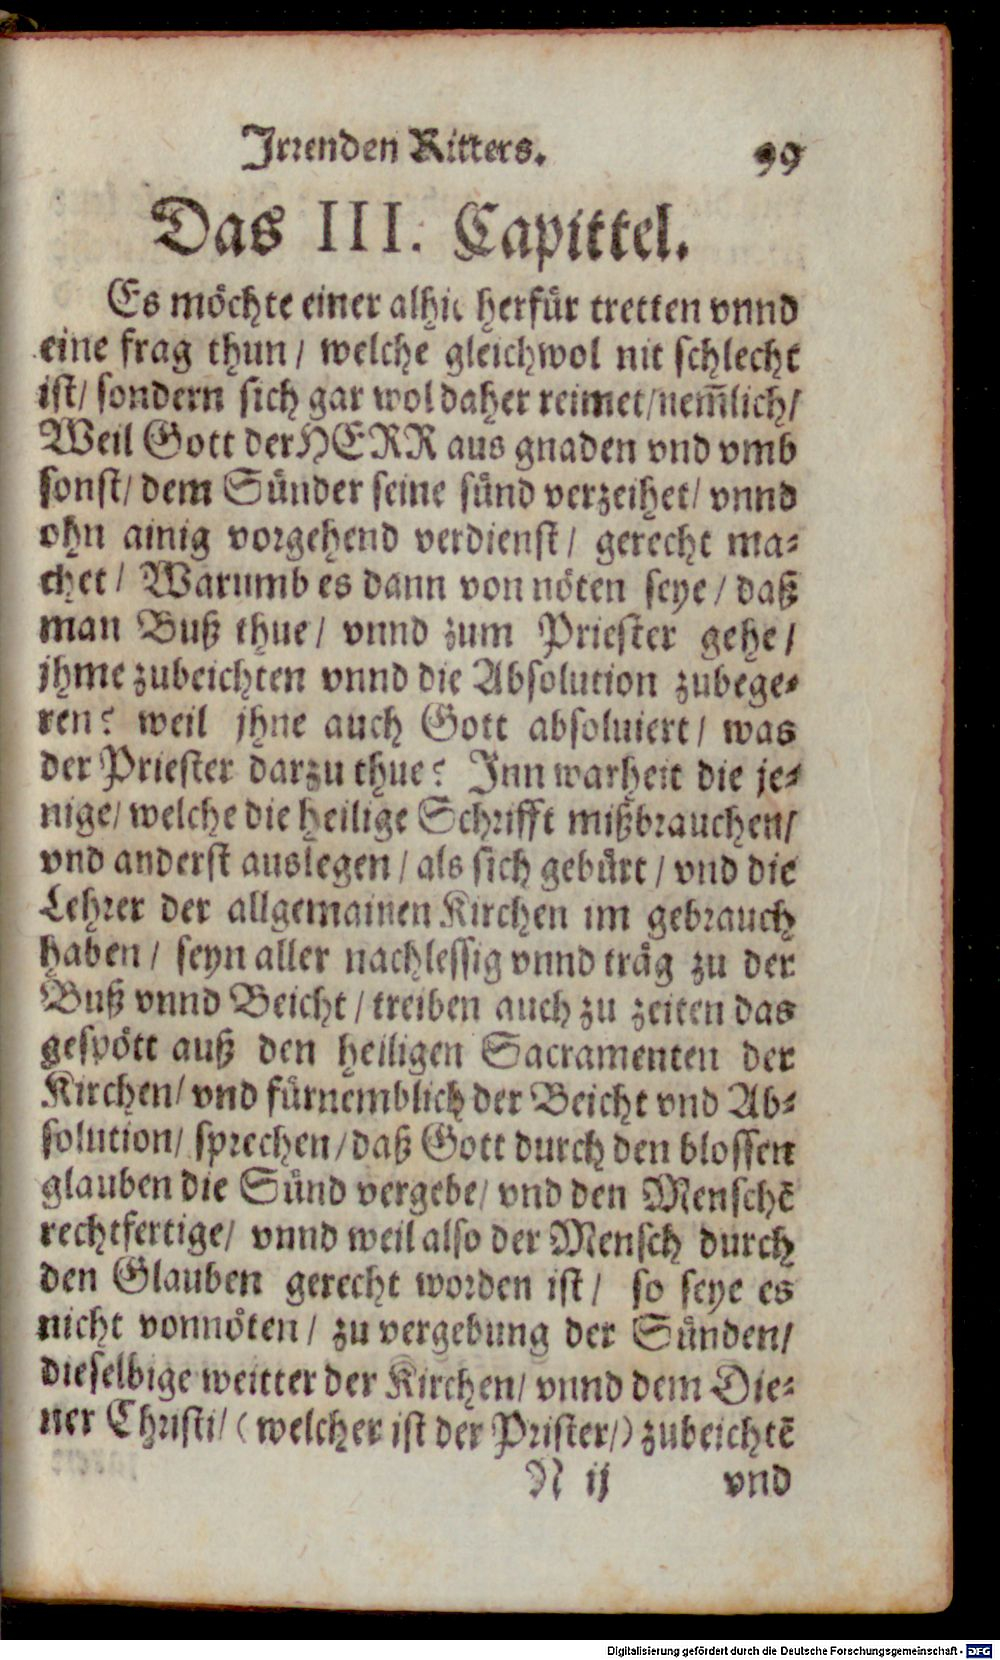 Irrenden Ritters. 99
Das III. Capittel.
Es möchte einer alhie herfür tretten vnnd
eine frag thun/ welche gleichwol nit schlecht
ist/ sondern sich gar wol daher reimet/nem̃lich/
Weil Gott der HERR aus gnaden vnd vmb
sonst/ dem Sünder seine sünd verzeihet/ vnnd
ohn ainig vorgehend verdienst/ gerecht ma⸗
chet/ Warumb es dann von nöten seye/ daß
man Buß thue/ vnnd zum Priester gehe/
jhme zubeichten vnnd die Absolution zubege⸗
ren? weil jhne auch Gott absoluiert/ was
der Priester darzu thue? Inn warheit die je⸗
nige/ welche die heilige Schrifft mißbrauchen/
vnd anderst auslegen/ als sich gebürt/ vnd die
Lehrer der allgemainen Kirchen im gebrauch
haben/ seyn aller nachlessig vnnd träg zu der
Buß vnnd Beicht/ treiben auch zu zeiten das
gespött auß den heiligen Sacramenten der
Kirchen/ vnd fürnemblich der Beicht vnd Ab⸗
solution/ sprechen/ daß Gott durch den blossen
glauben die Sünd vergebe/ vnd den Menschẽ
rechtfertige/ vnnd weil also der Mensch durch
den Glauben gerecht worden ist/ so seye es
nicht vonnöten/ zu vergebung der Sünden/
dieselbige weitter der Kirchen/ vnnd dem Die⸗
ner Christi/ (welcher ist der Prister/) zubeichtẽ
N ij vnd
Digitalisierung gefördert durch die Deutsche Forschungsgemeinschaft - DFG